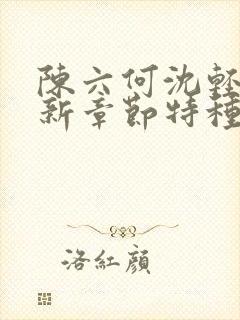 陳六何沈輕
新章節特種
洛紅顏